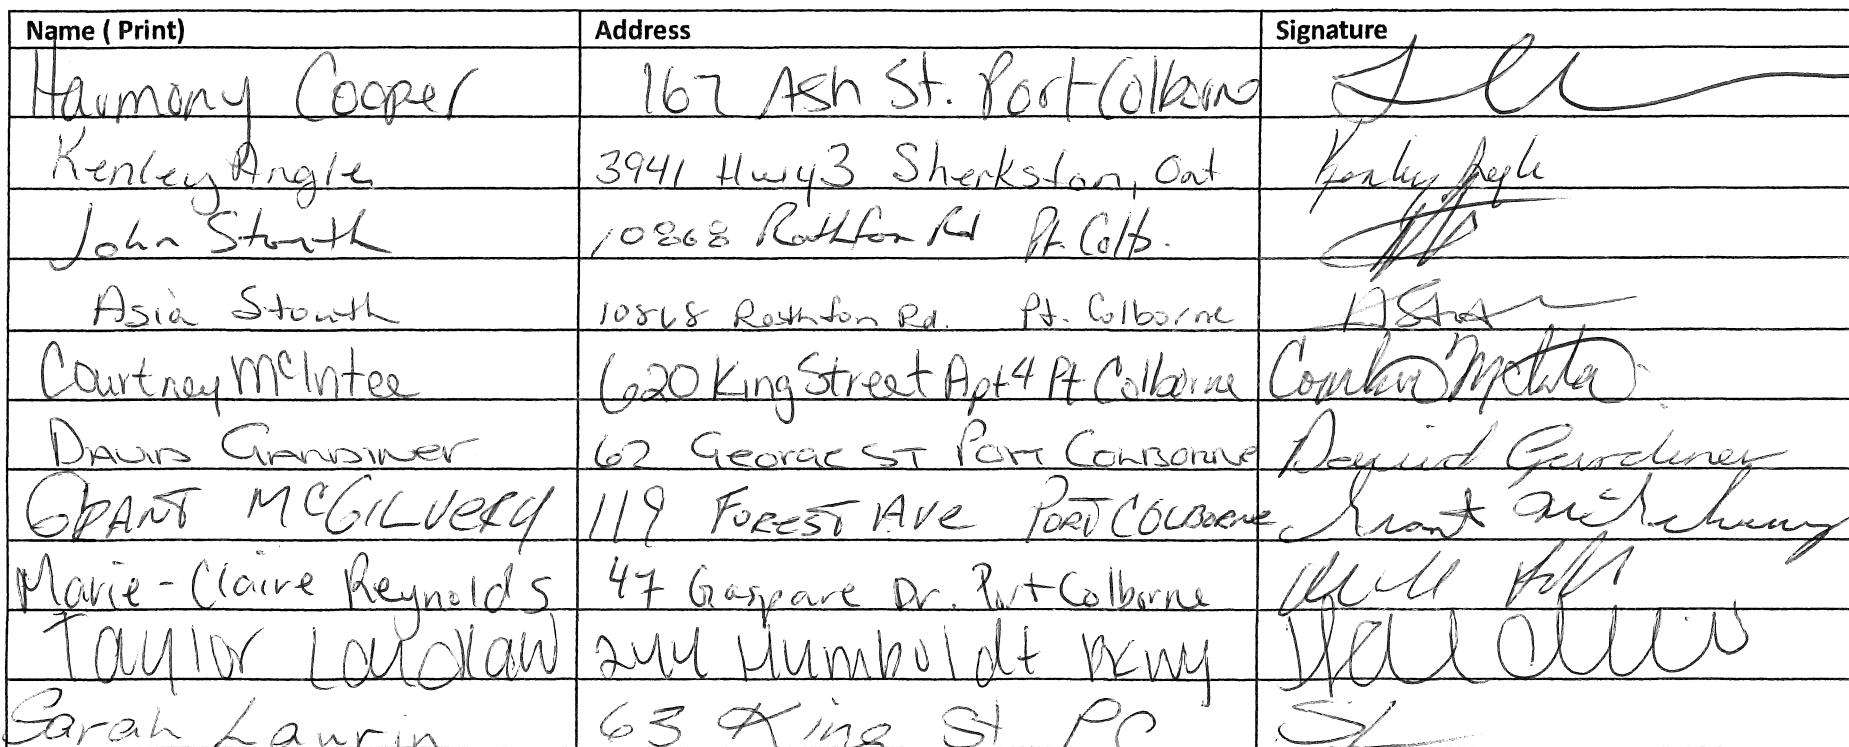 Name ( Print) Address Signature
Harmony Cooper 167 Ash St. Port Colborne
Kenley Angle 3941 Hwy 3 Sherkston, Ont Kenley Angle
John Stouth 10868 Rathfon Rd Pt. Colb.
Asia Stouth 10868 Rathfon Rd. Pt. Colborne
Courtney McIntee 620 King Street Apt 4 Pt Colborne
DAVID GARDINER 62 GEORGE ST PORT COLBORNE David Gardiner
GRANT MCGILVERY 119 FOREST AVE PORT COLBORNE Grant
Marie-Claire Reynolds 47 Gaspare Dr. Port Colborne
Taylor Laudlaw 244 Humboldt PKWY
Sarah Laurin 63 King St PC SL